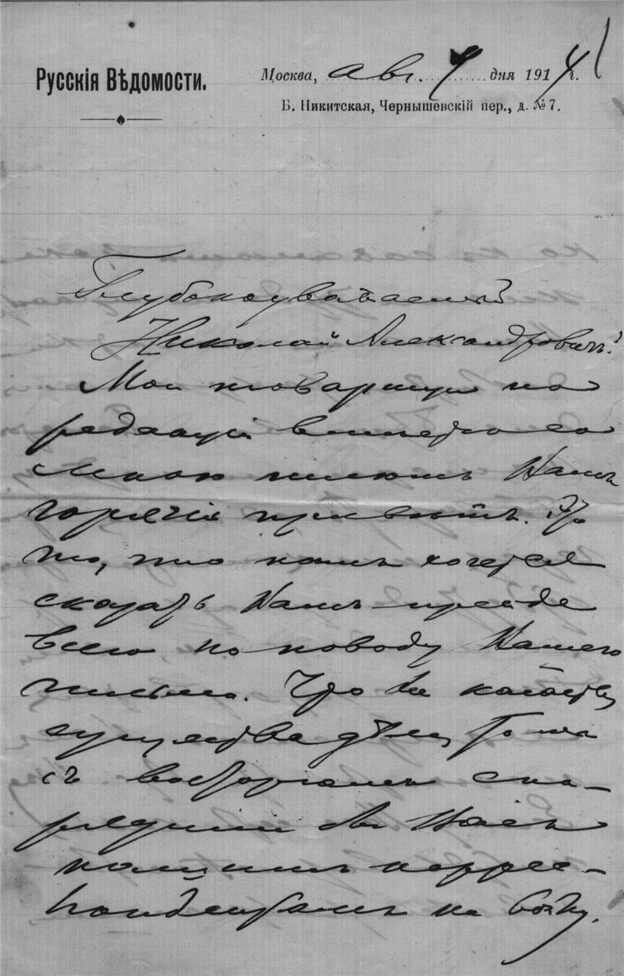 Русскія Вѣдомости.
Москва, авг. 4 дня 1914 г.
Б. Никитская, Чернышевскій пер., д. №7.
Глубокоуважаемый
Николай Александровичъ!
Мои товарищи по
редакціи вместе со
мною шлютъ Вамъ
горячій привѣтъ. Это
то, что намъ хочется
сказать Вамъ прежде
всего по поводу Вашего
письма. Что же касается
существа дѣла, то мы
съ восторгомъ сна-
рядили бы Васъ
нашимъ коррес-
пондентомъ на войну.